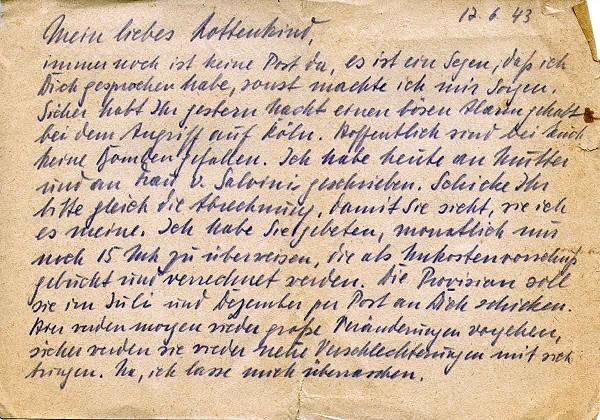 17.6.43
Mein liebes Lottenkind,
immer noch ist keine Post da, es ist ein Segen, daß ich
Dich gesprochen habe, sonst machte ich mir Sorgen.
Sicher habt Ihr gestern nacht einen bösen Alarm gehabt
bei dem Angriff auf Köln. Hoffentlich sind bei Euch
keine Bomben gefallen. Ich habe heute an Mutter
und an Frau v. Salvini geschrieben. Schicke Ihr
bitte gleich die Abrechnung, damit Sie sieht, wie ich
es meine. Ich habe Sie gebeten, monatlich nur
noch 15 Mk zu überweisen, die als Unkostenvorschuß
gebucht und verrechnet werden. Die Provision soll
sie im Juli und Dezember per Post an Dich schicken.
Hier werden morgen wieder große Veränderungen vorgehen,
sicher werden sie wieder nette Verschlechterungen mit sich
bringen. Na, ich lasse mich überraschen.